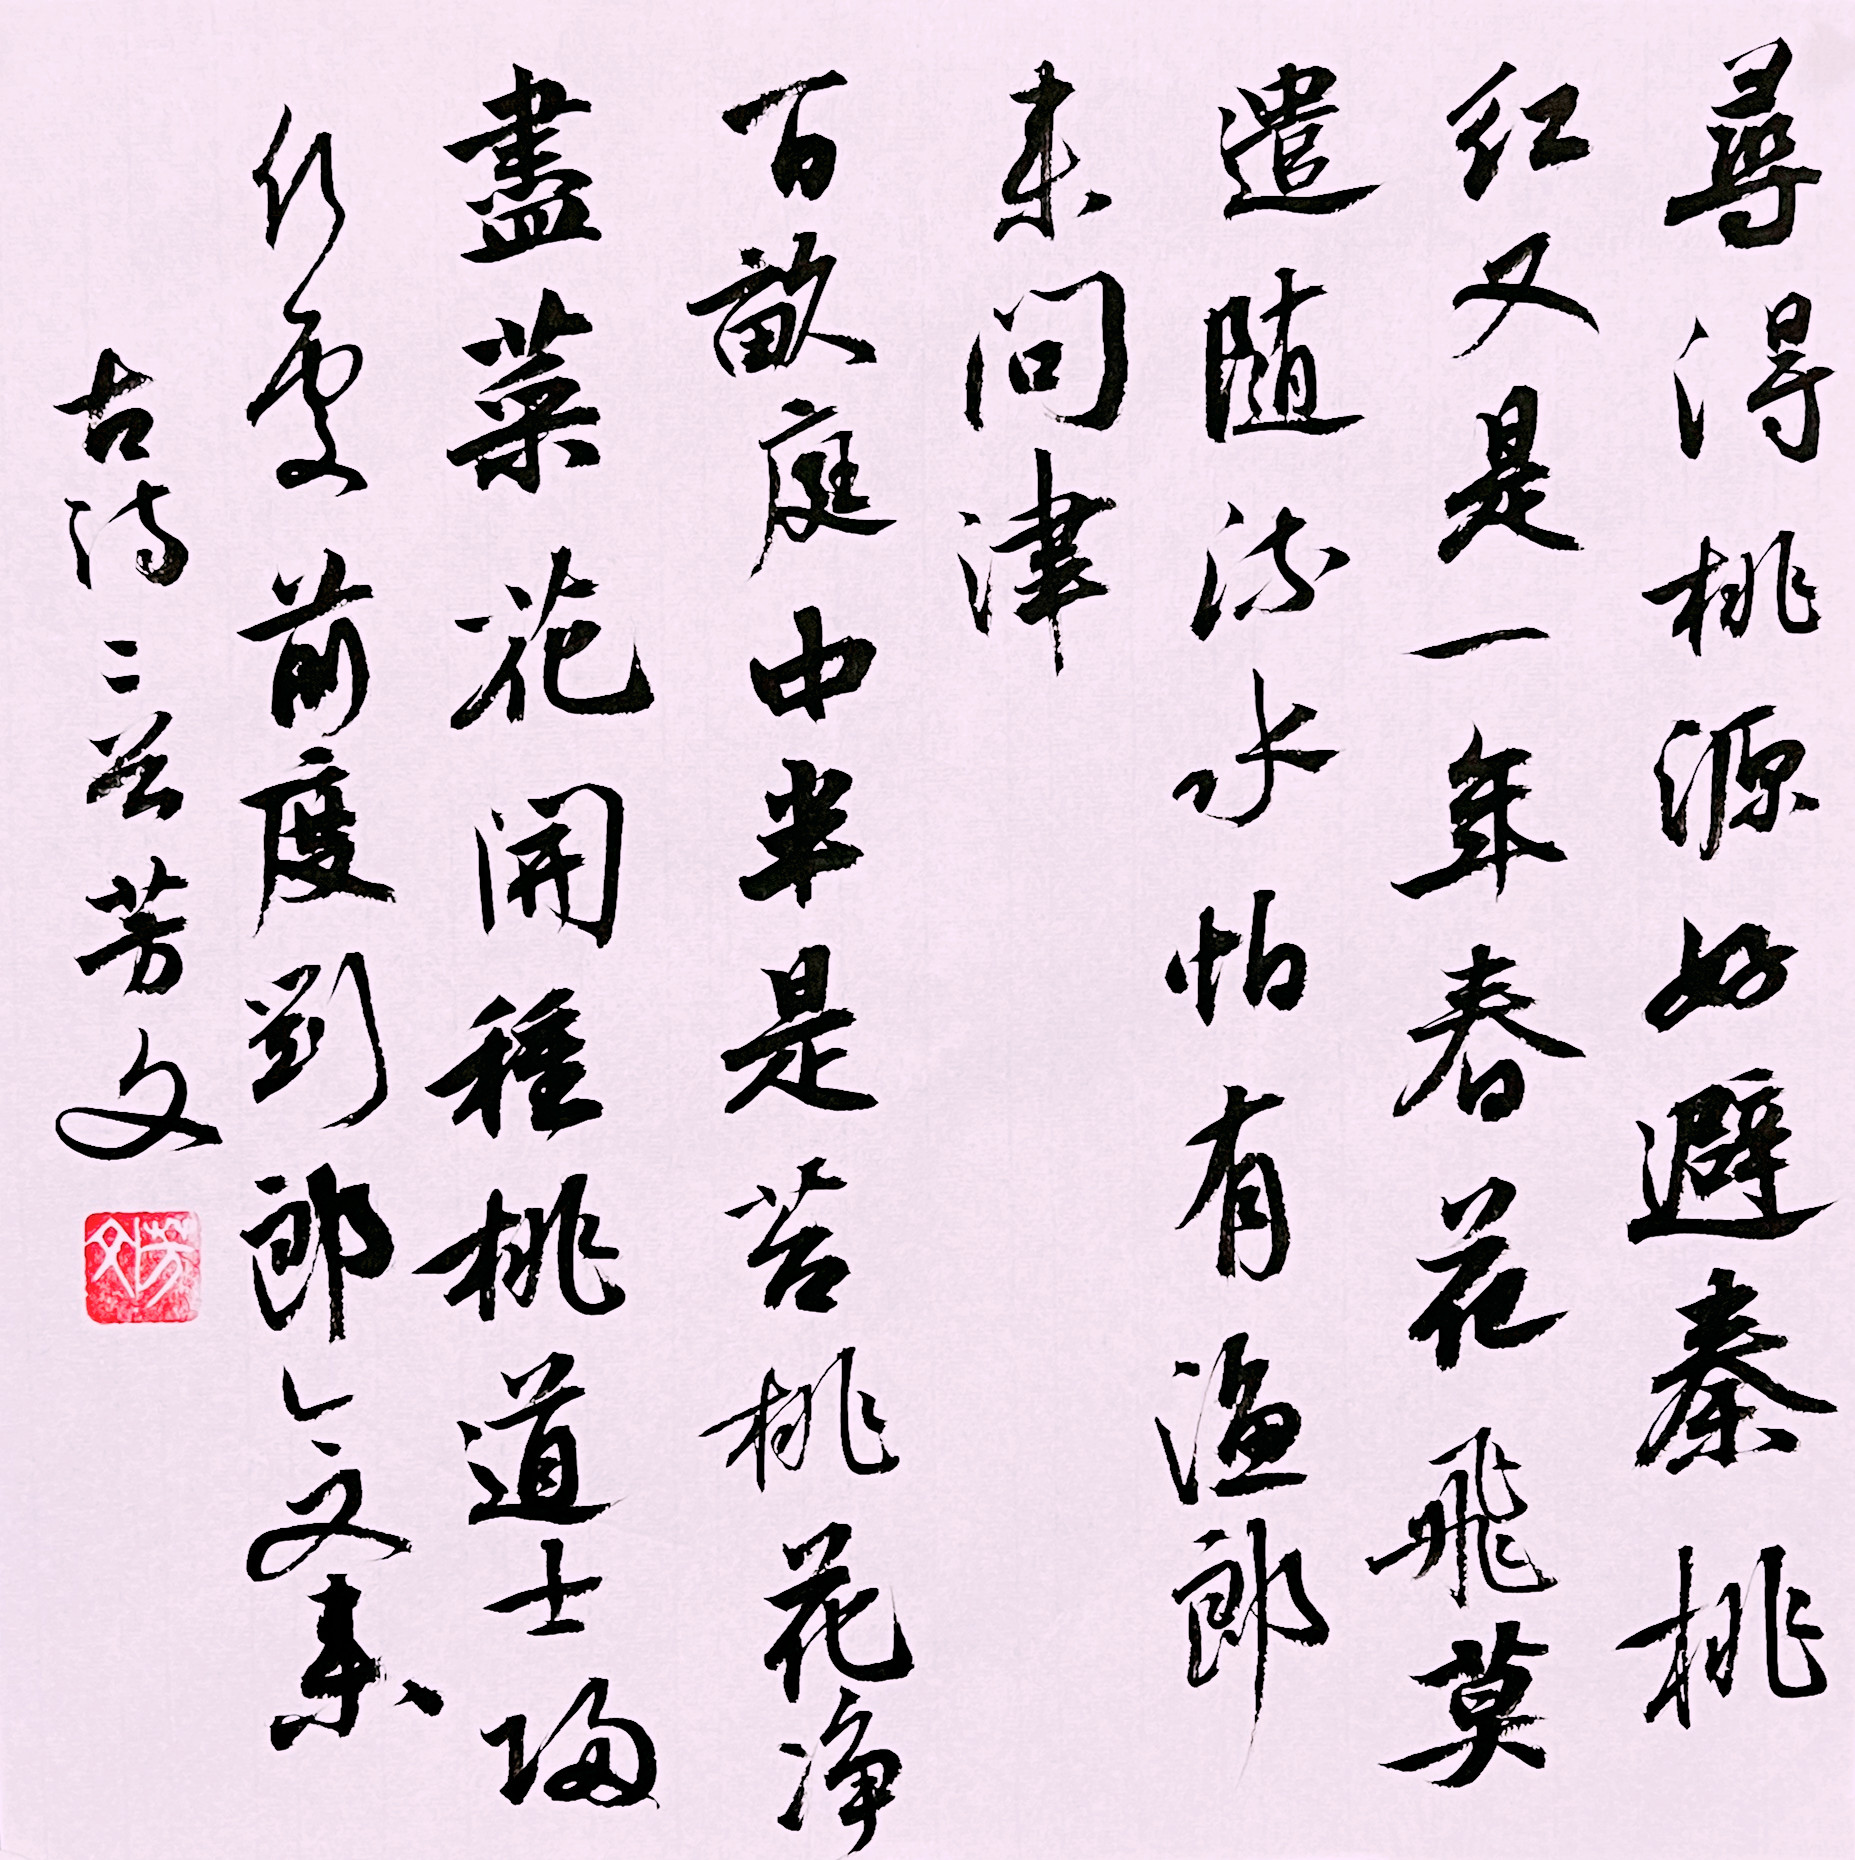 尋得桃源好避秦桃
紅又是一年春花飛莫
遣隨流水怕有漁郎
來問津
百畝庭中半是苔桃花净
盡菜花開種桃道士歸
何處前度劉郎今又來
古詩二首芳文
芳文